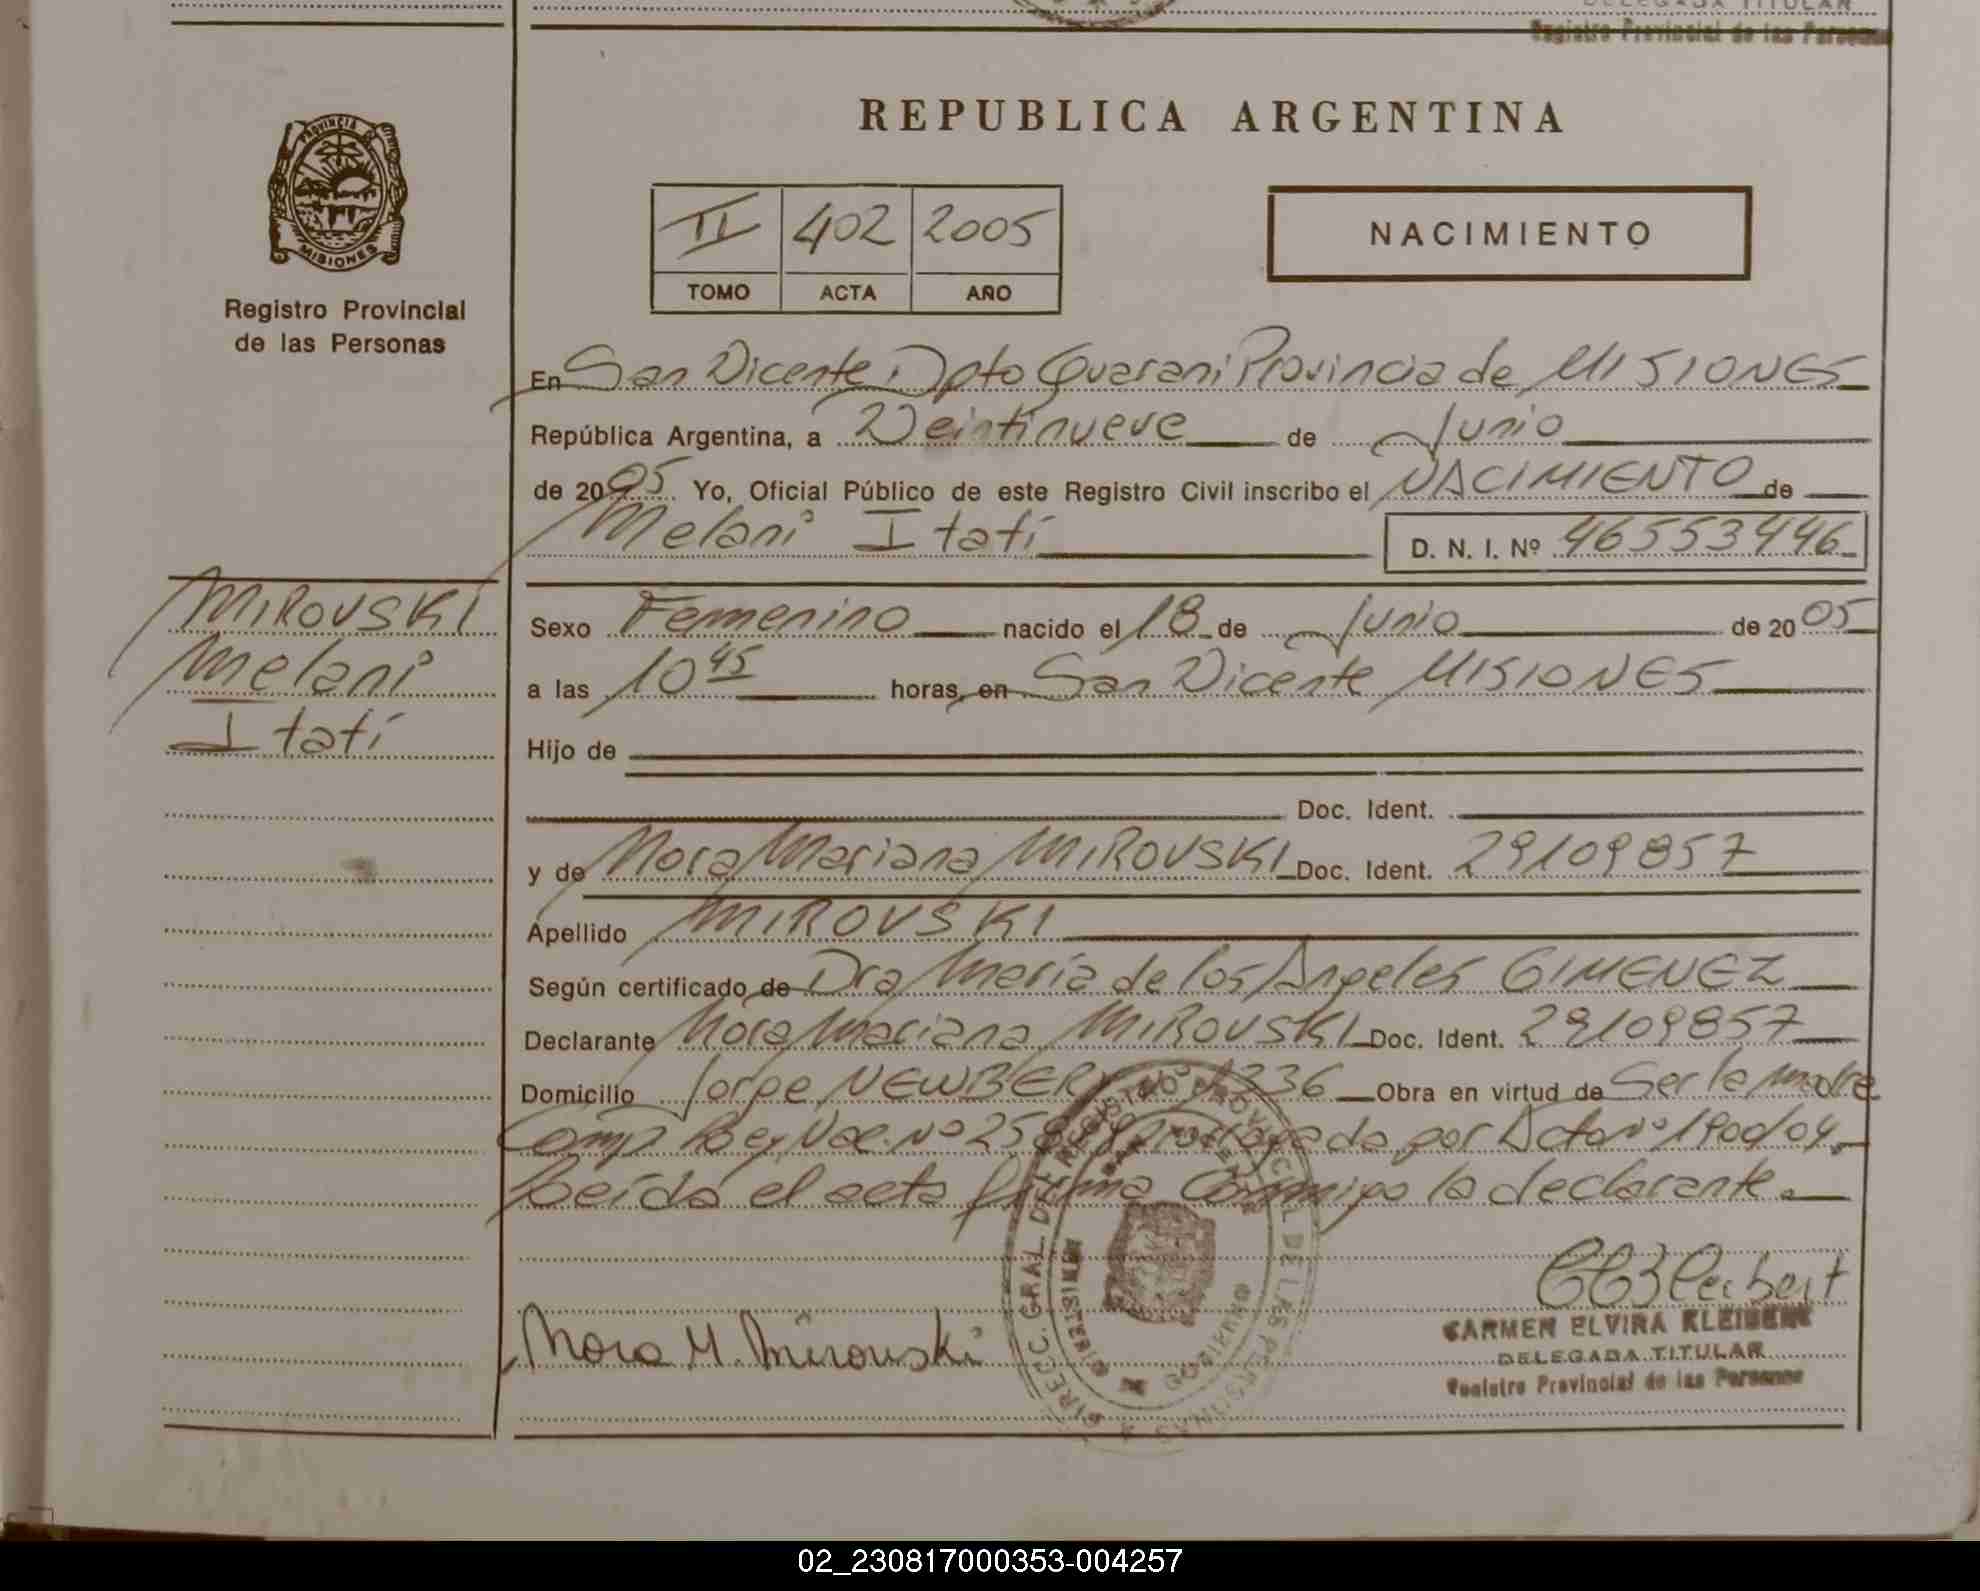 DELEGADA TITULAR
Registro Provincial de las Personas
PROVINCIA DE
MISIONES
Registro Provincial
de las Personas
REPUBLICA ARGENTINA
II 402 2005
TOMO ACTA AÑO
NACIMIENTO
En San Vicente, Dpto Guarani Provincia de MISIONES
República Argentina, a Veintinueve de Junio
de 2005 Yo, Oficial Público de este Registro Civil inscribo el NACIMIENTO de
Melani Itatí D. N. I. Nº 46553446
MIROVSKI
Melani
Itatí
Sexo Femenino nacido el 18 de Junio de 2005
a las 10 45 horas, en San Vicente MISIONES
Hijo de
Doc. Ident.
y de Nora Mariana MIROVSKI Doc. Ident. 29109857
Apellido MIROVSKI
Según certificado de Dra María de los Angeles GIMENEZ
Declarante Nora Mariana MIROVSKI Doc. Ident. 29109857
Domicilio Jorge NEWBERY Nº 1336 Obra en virtud de Ser la madre
Comp. Ley Nac. Nº por Acta Nº
Leída el acta firma Conmigo la declarante.
Nora M. Mirovski
CARMEN ELVIRA KLEIBERT
DELEGADA TITULAR
Registro Provincial de las Personas
DIRECC. GRAL. DEL REGISTRO PROVINCIAL DE LAS PERSONAS
02_230817000353-004257